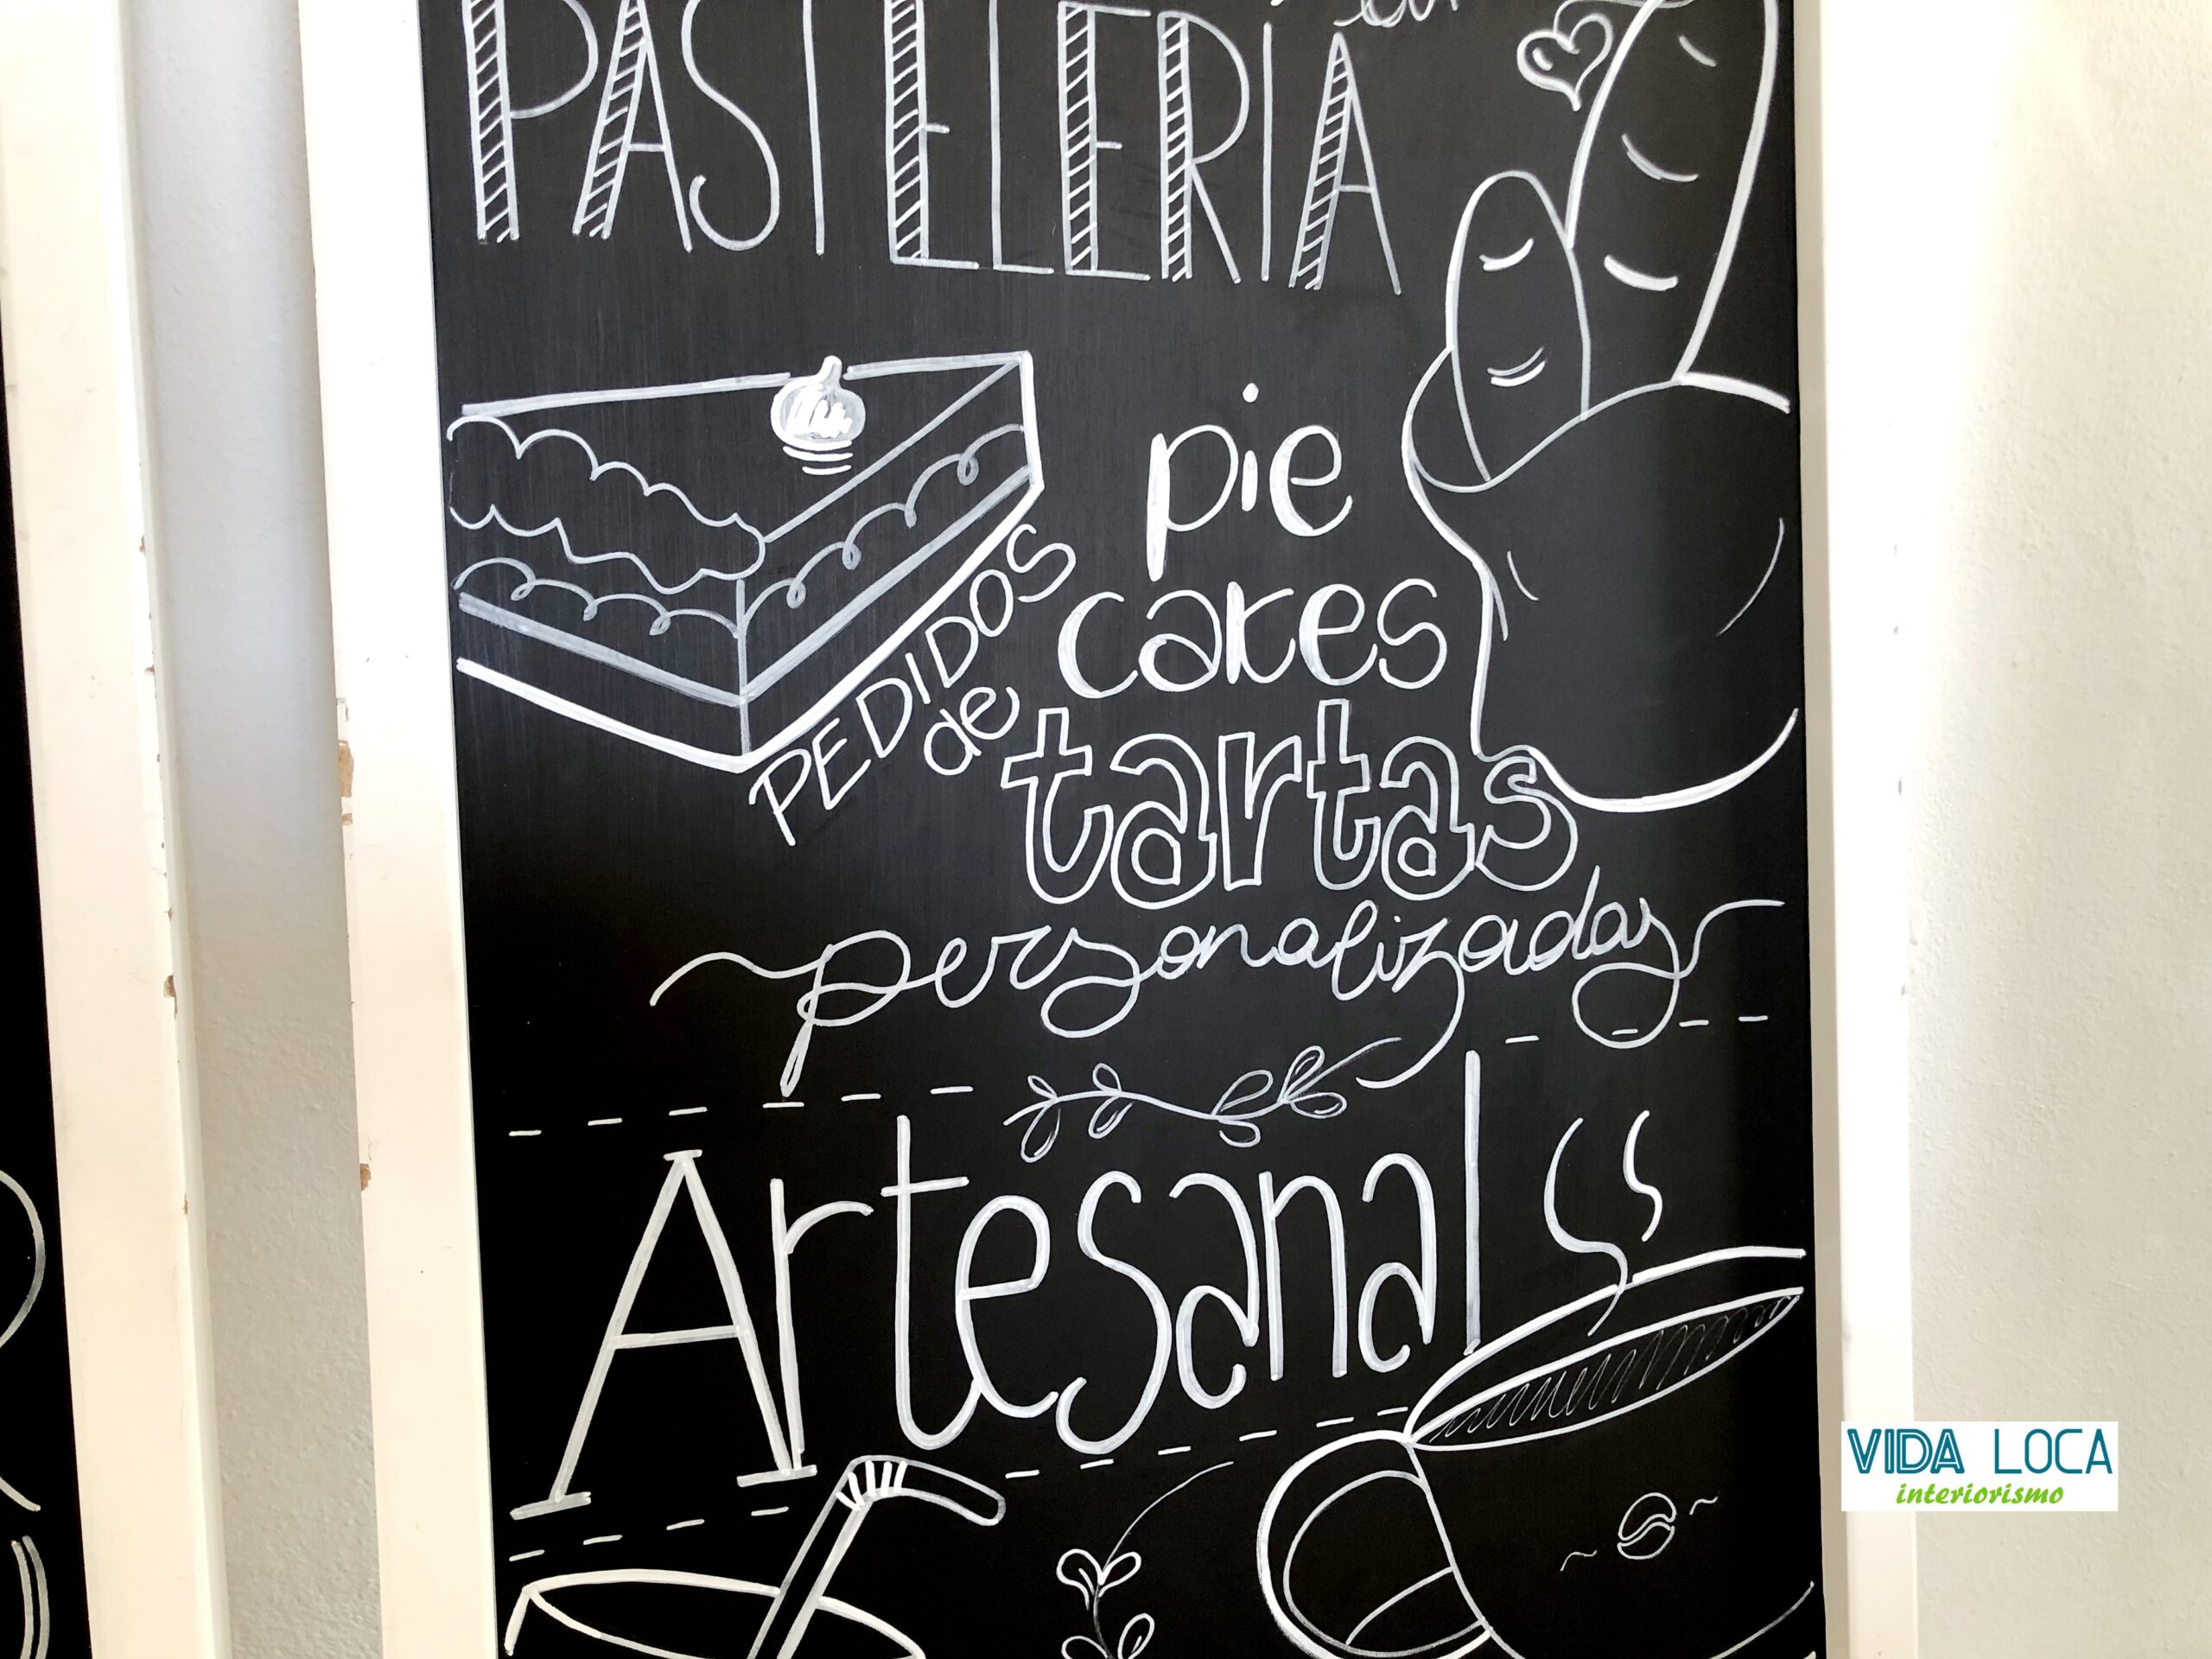 PASTELERÍA
pie
cakes
PEDIDOS
de
tartas
personalizadas
Artesanal
VIDA LOCA
interiorismo